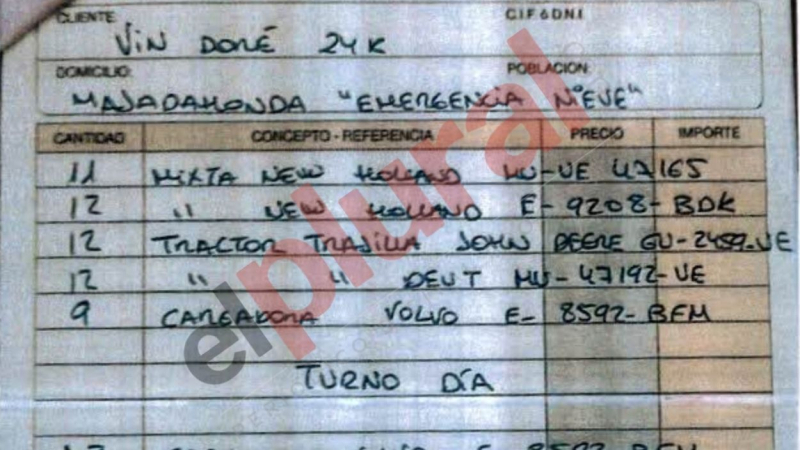 CLIENTE C I F ó D N I
VIN DORÉ 24K
DOMICILIO: POBLACION:
MAJADAHONDA "EMERGENCIA NIEVE"
CANTIDAD CONCEPTO - REFERENCIA PRECIO IMPORTE
11 MIXTA NEW HOLLAND MU-VE 47165
12 " NEW HOLLAND E- 9208- BDK
12 TRACTOR TRAJILLA JOHN DEERE GU-2459-VE
12 " " DEUT MU- 47192-VE
9 CARGADORA VOLVO E- 8592- BFM
TURNO DÍA
E 8592 BFM
elplural